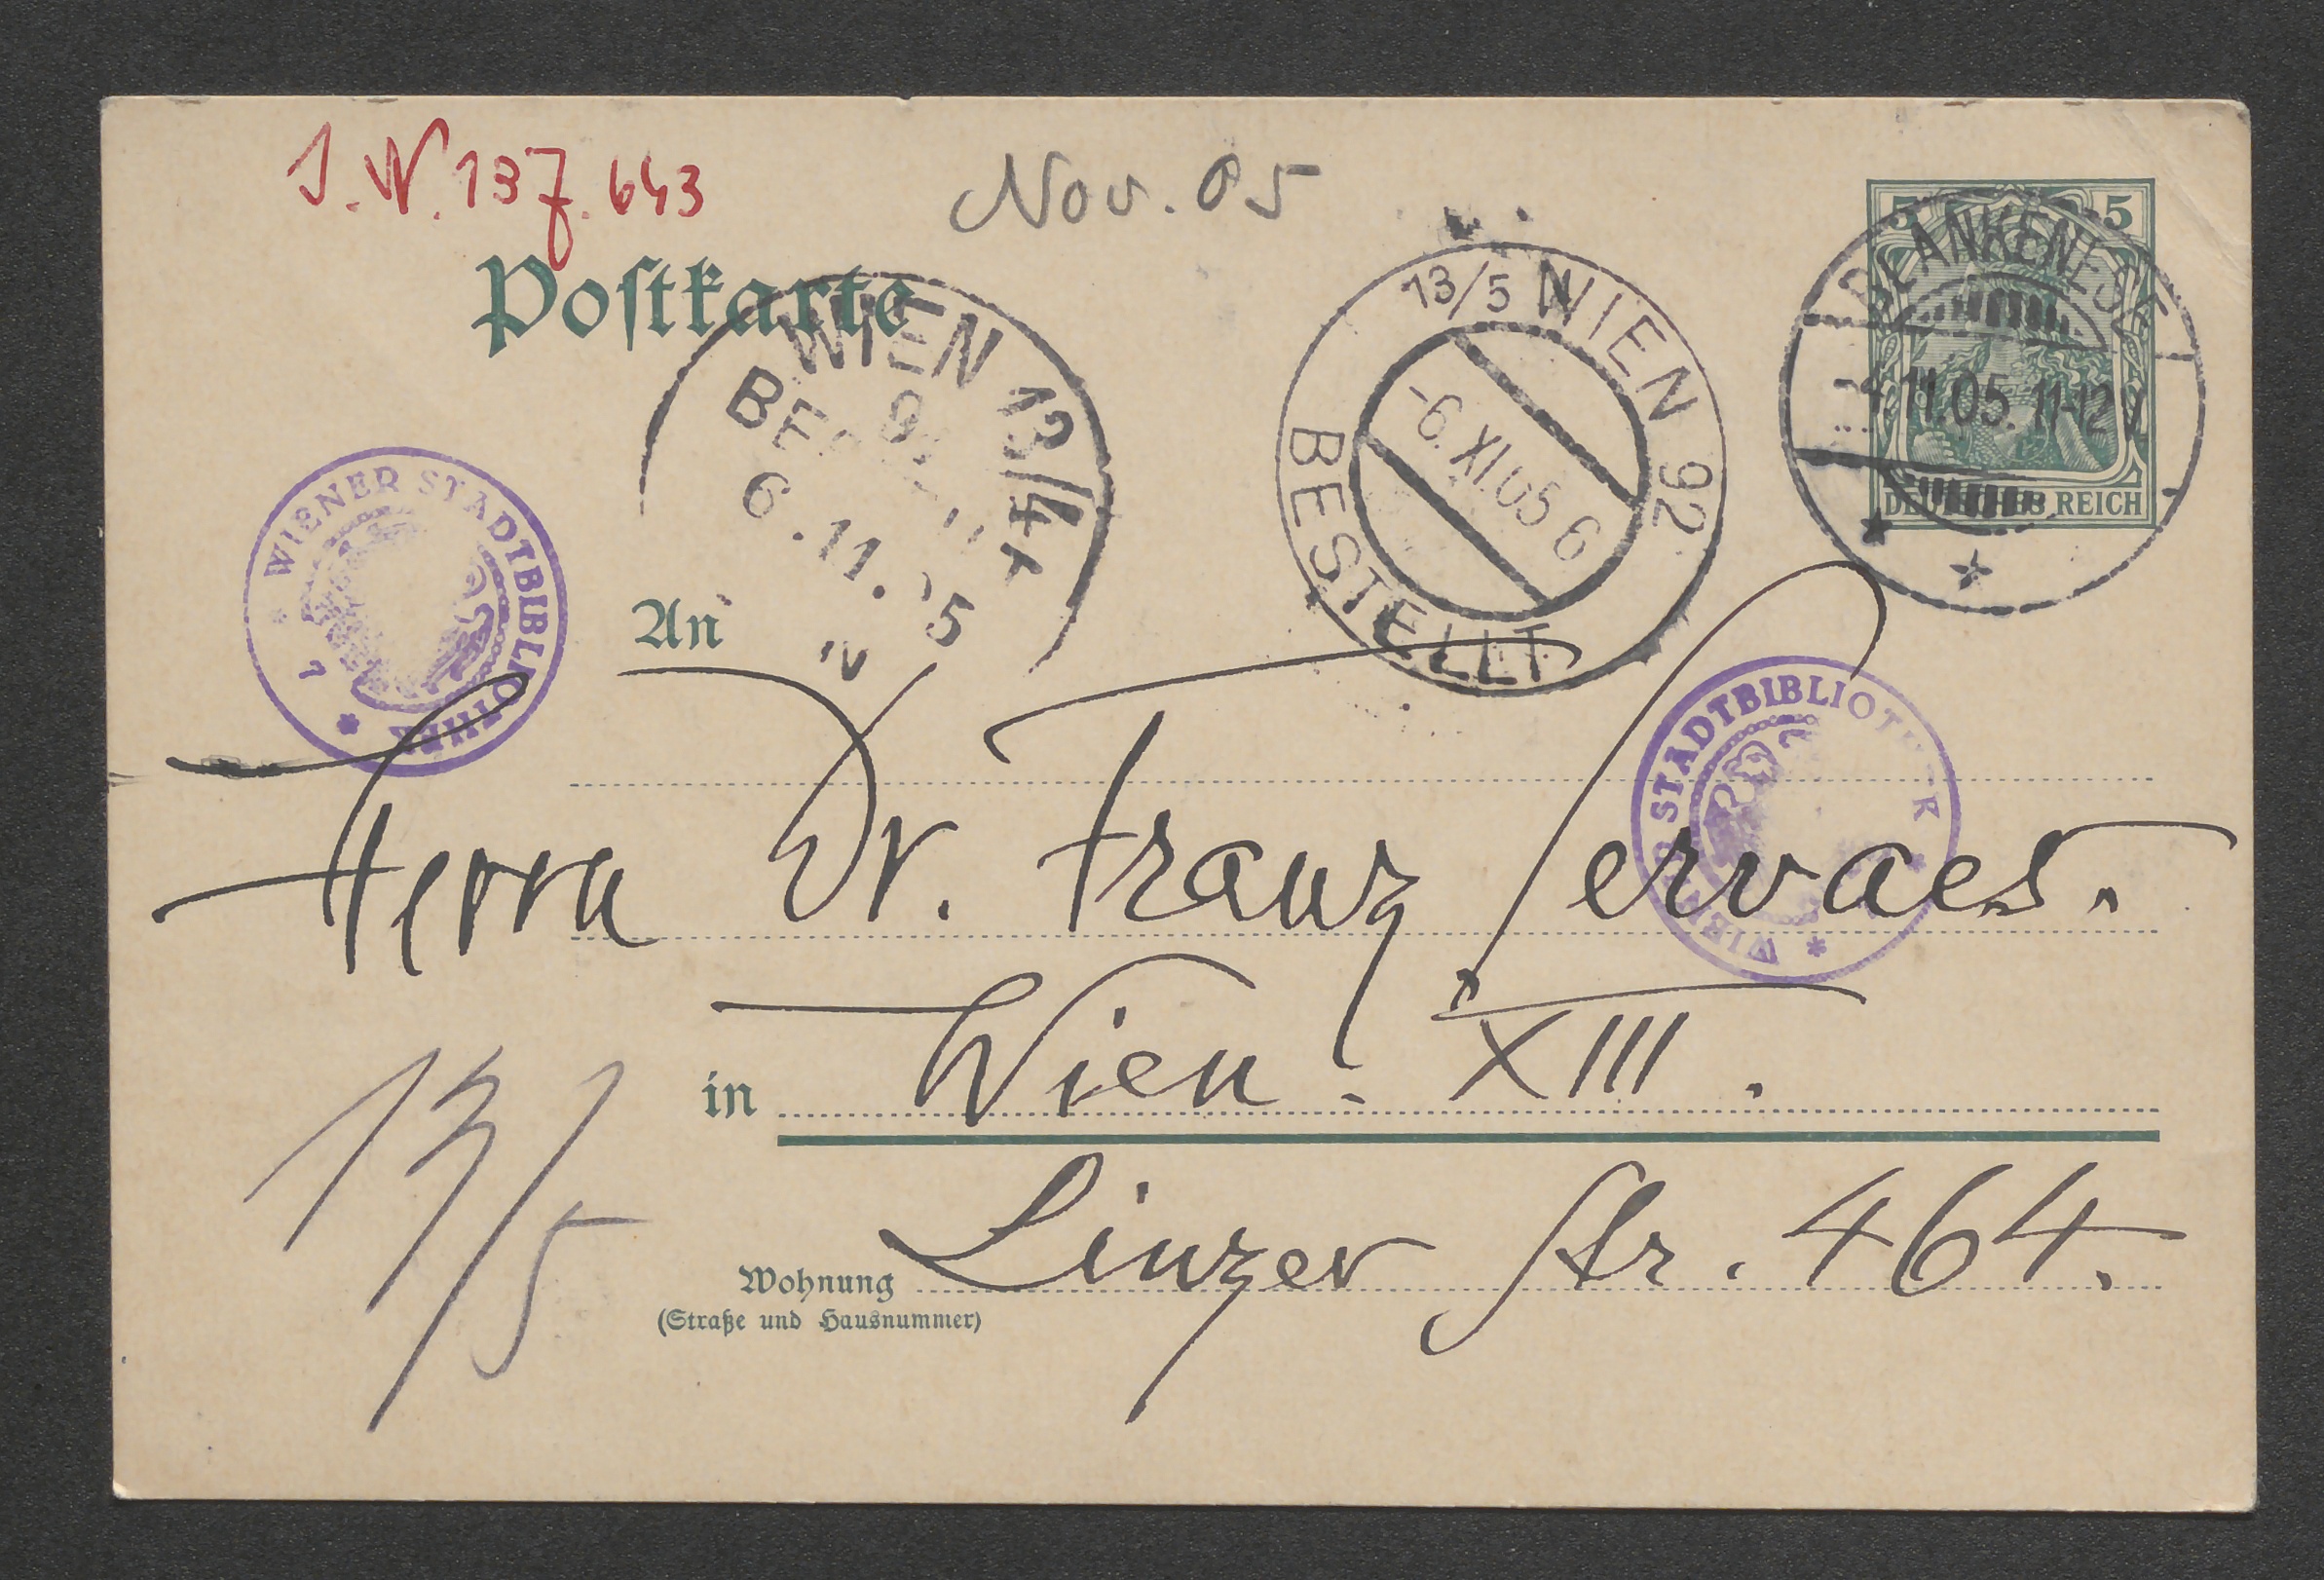 J.N. 137.643
Nov. 05
Postkarte
5 5
DEUTSCHES REICH
BLANKENESE
4.11.05. 11-12V
WIEN 13/4
BESTELLT
6.11.05
13/5 WIEN 92
-6.XI.05 6
BESTELLT
WIENER STADTBIBLIOTHEK
1
WIENER STADTBIBLIOTHEK
An
Herrn Dr. Franz Servaes.
in Wien. XIII.
13/5
Linzer Str. 464.
Wohnung
(Straße und Hausnummer)